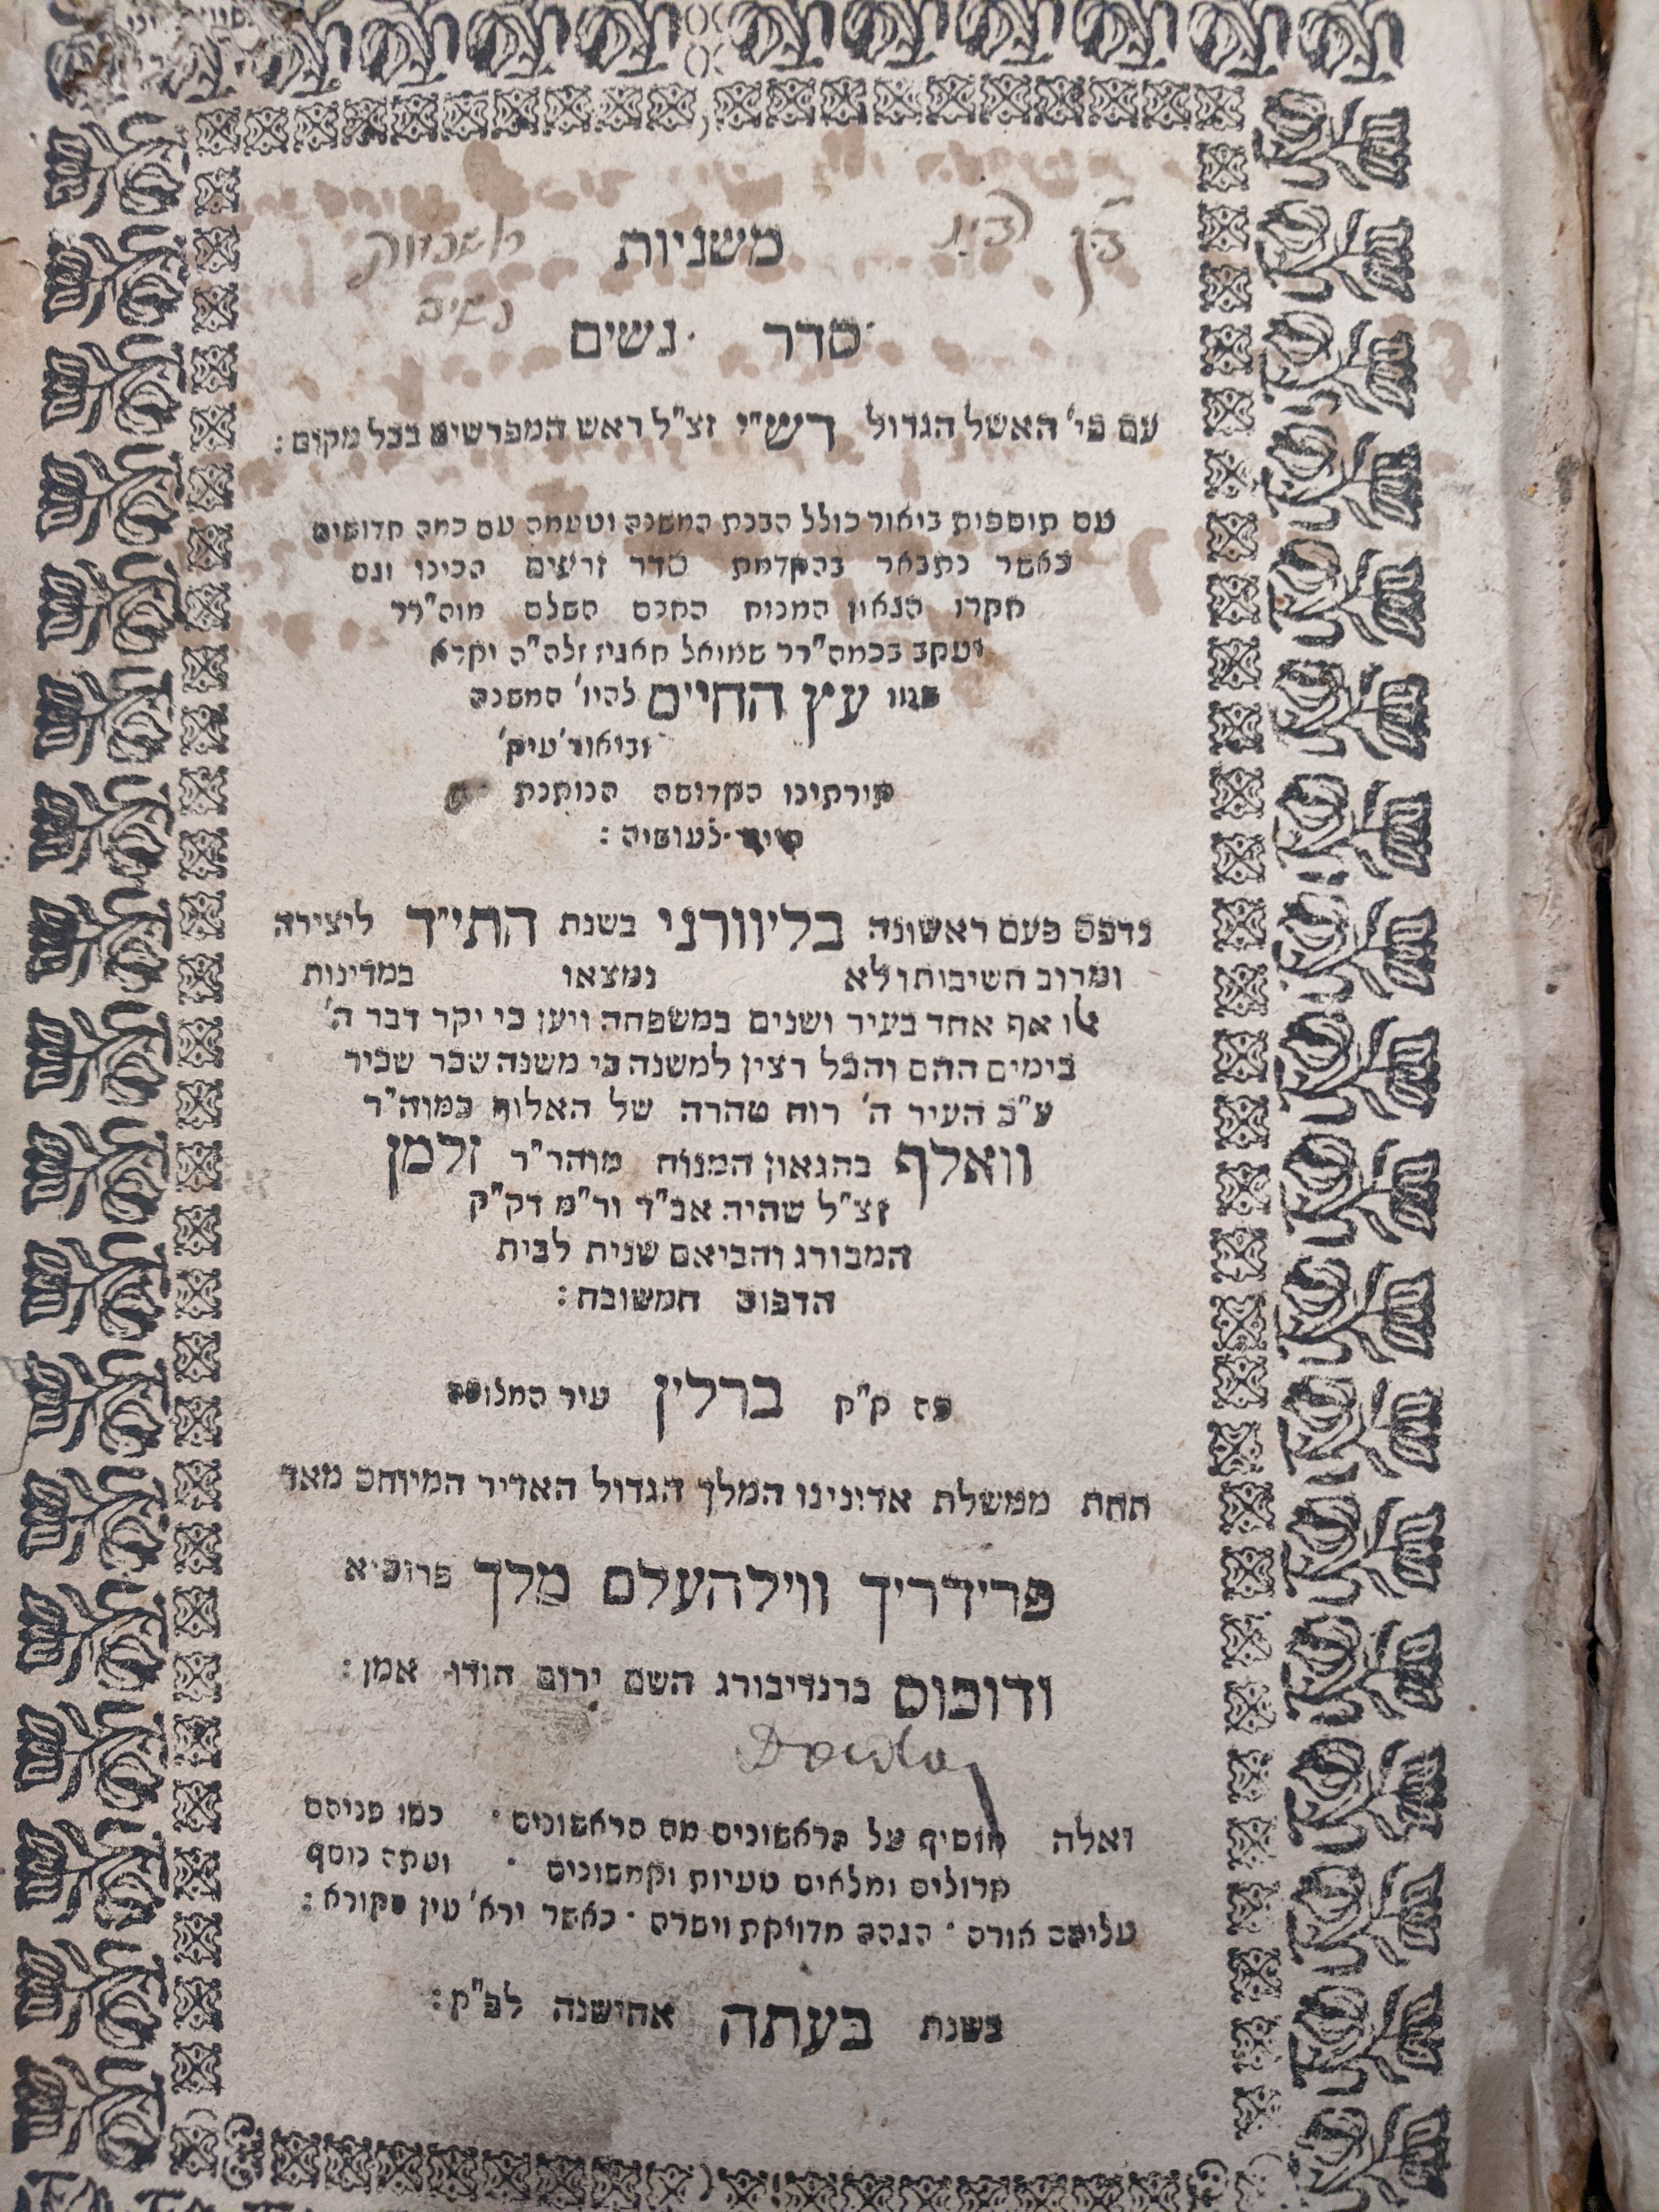 משניות
סדר נשים
עם פי' האשל הגדול רש"י זצ"ל ראש המפרשים בכל מקום:
עם תוספות ביאור כולל הבנת המשנה וטעמה עם כמה חדושים
כאשר נתבאר בהקדמת סדר זרעים הכינו וגם
חקרו הגאון המנוח החכם השלם מוה"רר
יעקב בכמה"רר שמואל חאגיז זלה"ה יקרא
עץ החיים להיו' המשנה
וביאור'
תורתינו הקדושה הנותנת
לעושיה:
נדפס פעם ראשונה בליוורני בשנת התי"ד ליצירה
ומרוב חשיבותו לא נמצאו במדינות
אלו אף אחד בעיר ושנים במשפחה ויען כי יקר דבר ה'
בימים ההם והכל רצין למשנה כי משנה שכר שכיר
ע"כ העיר ה' רוח טהרה של האלוף כמוה"ר
וואלף בהגאון המנוח מוהר"ר זלמן
זצ"ל שהיה אב"ד ור"מ דק"ק
המבורג והביאם שנית לבית
הדפוס המשובח:
פה ק"ק ברלין עיר המלוכה
תחת ממשלת אדונינו המלך הגדול האדיר המיוחס מאד
פרידריך ווילהעלם מלך פרוסיא
ודוכוס ברנדיבורג השם ירום הודו אמן:
ואלה מוסיף על הראשונים מם הראשונים כמו פניהם
חרולים ומלאים טעיות וקמשונים ועתה נוסף
עליהם אורה הגהה מדויקת ויסרה כאשר ירא' עין הקורא:
בשנת בעתה אחישנה לפ"ק: